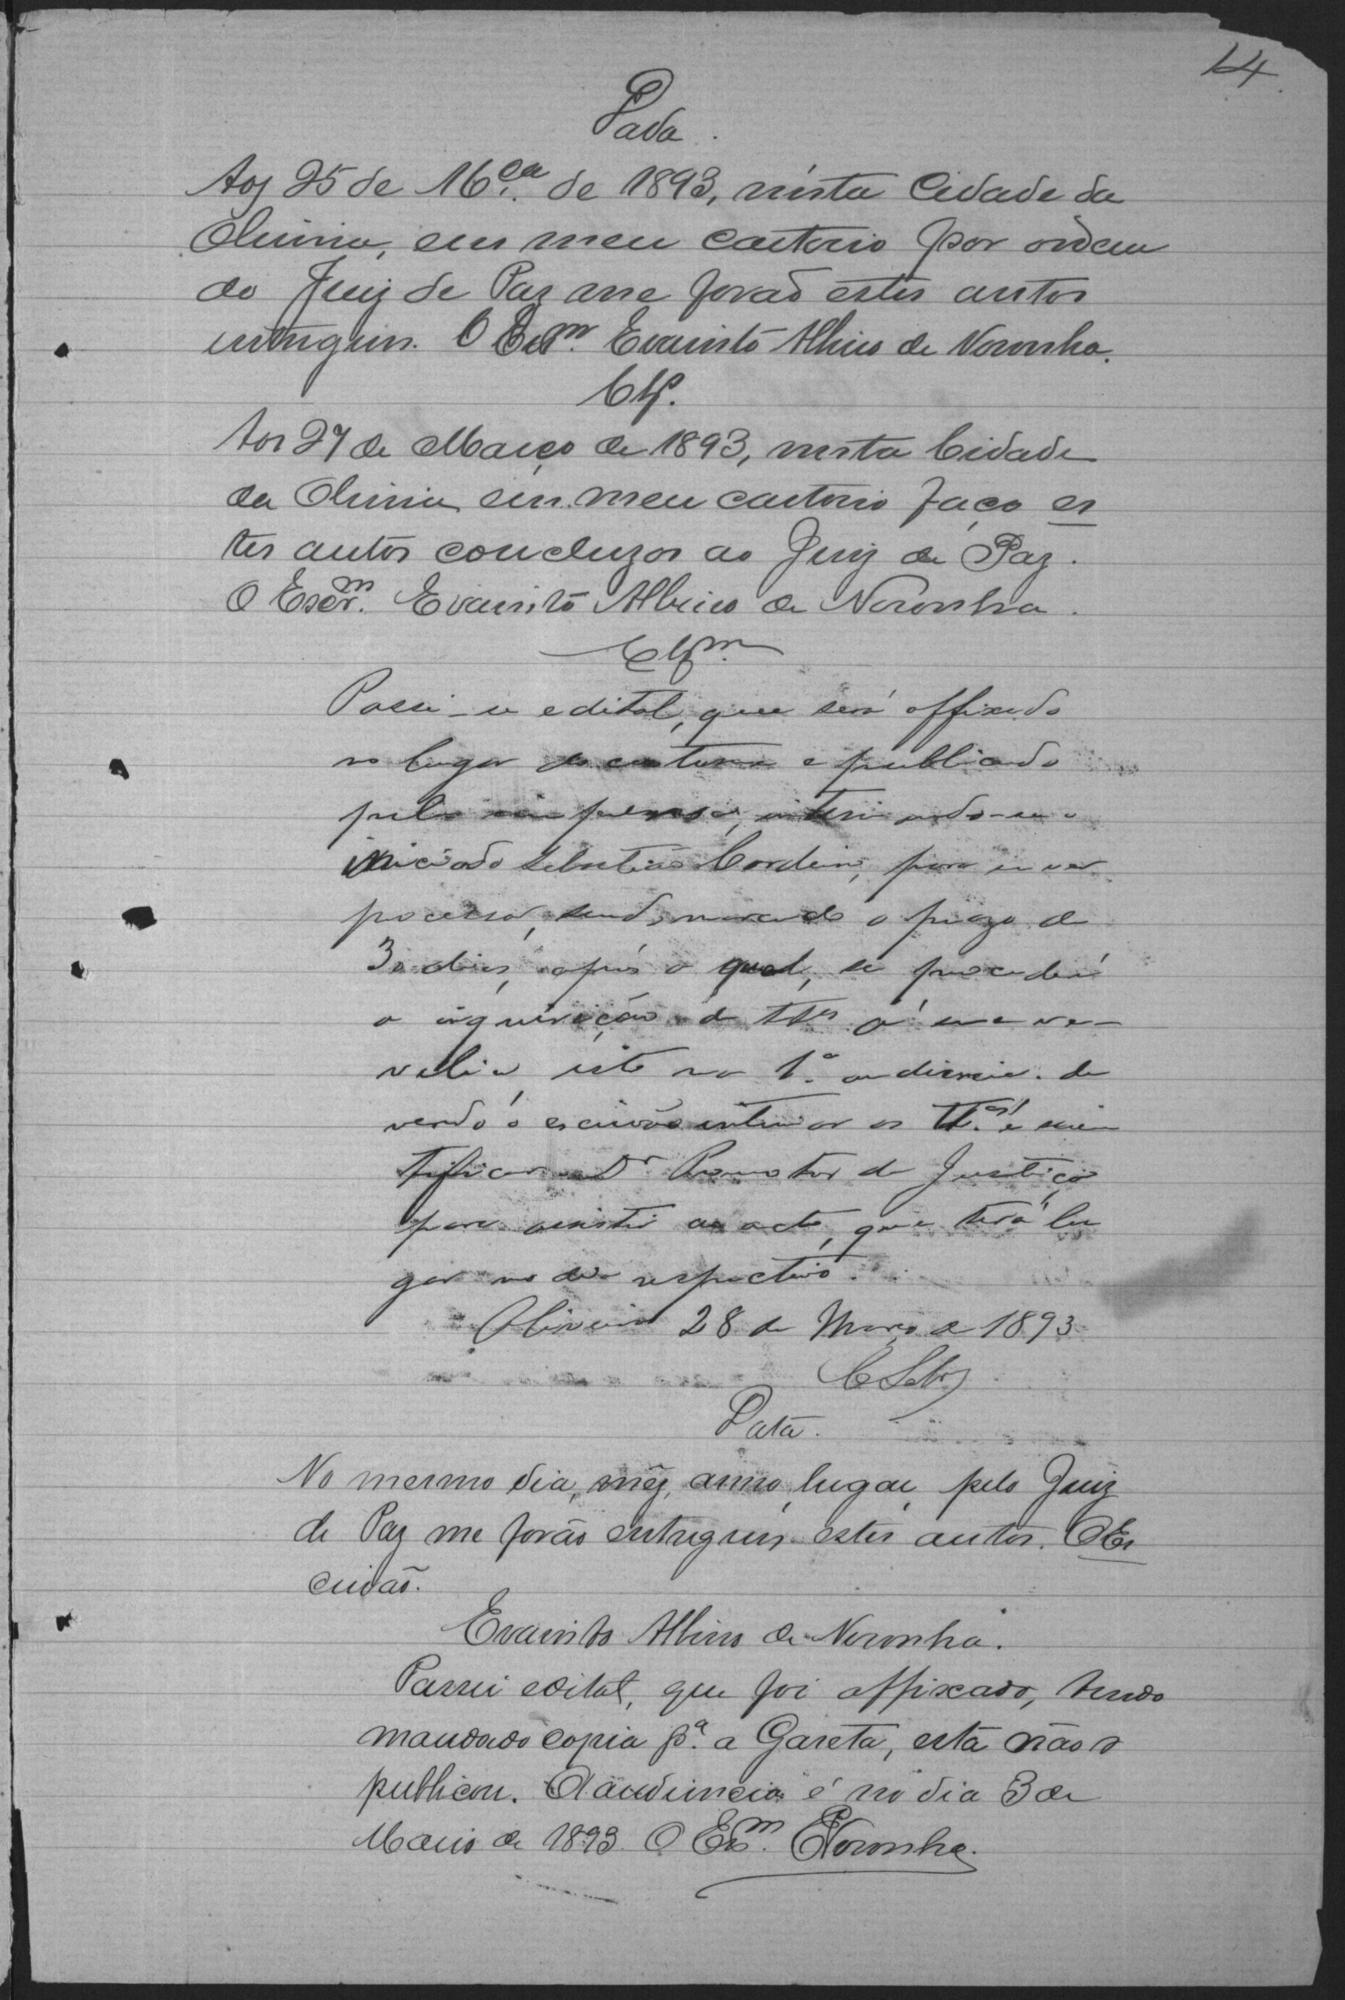 14
Data.
Aos 25 de de 1893, nésta Cidade da
Oliveira, em meu cartorio por ordem
do Juiz de Paz me forão estes autos
entregues. O Escr.m Evaristo Albino de Noronha.
Cls.
Aos 27 de Março de 1893, nesta Cidade
da Oliveira em meu cartorio faço es
tes autos concluzos ao Juiz de Paz.
O Escr.m Evaristo Albino de Noronha.
Clsm.
Passe-se edital, que será affixado
no lugar do costume e publicado
pela imprensa, intimando-se o
Sebastião Cordeiro, para se ver
processar, sendo marcado o prazo de
30 dias, após o qual, se procederá
a inquirição de ttas á sua re-
velia, isto na 1.a audiencia. de
vendo o escrivão intimar as tt.as e scien
tificar o Dr Promotor de Justiça
para assistir ao acto, que terá lu
gar no dia respectivo.
Oliveira 28 de Março de 1893
Data.
No mesmo dia, mêz, anno, lugar, pelo Juiz
de Paz me forão entregues estes autos. O Es
crivão.
Evaristo Albino de Noronha.
Passei edital, que foi affixado, tendo
mandado copia p.a a Gazeta, esta não o
publicou. A audiencia é no dia 3 de
Maio de 1893. O Es.m ENoronha.